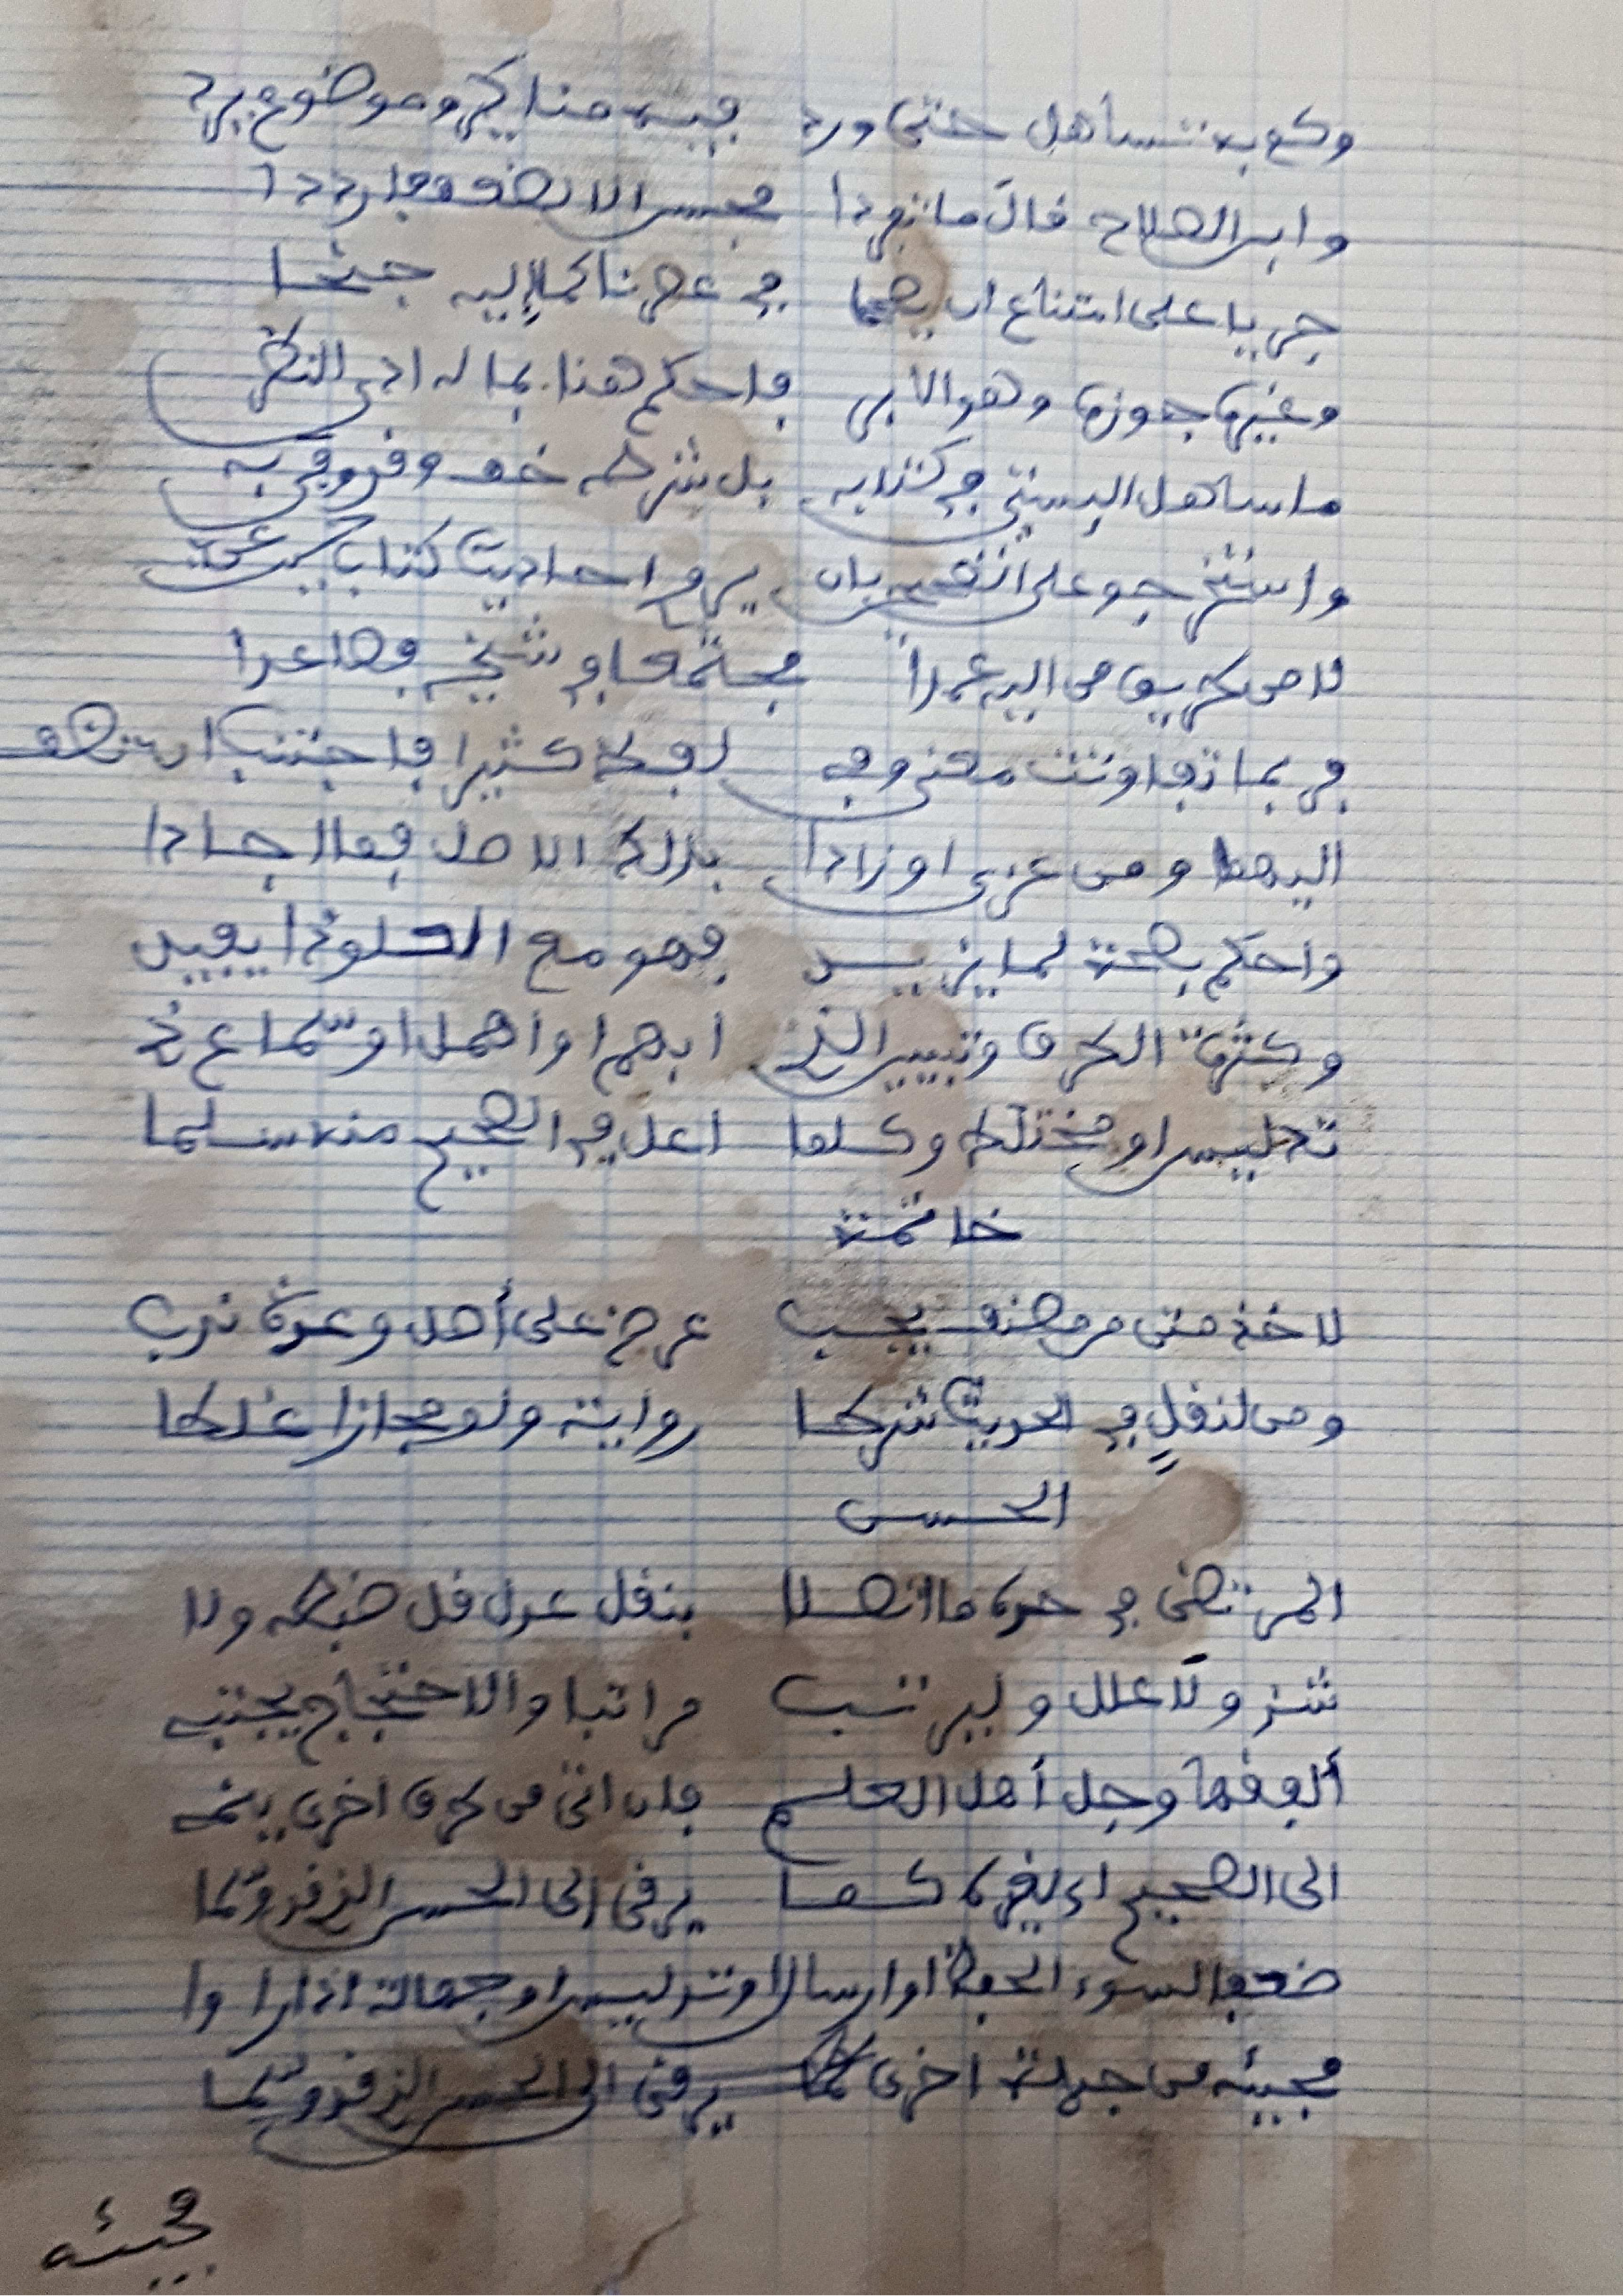 وكم به تساهل حتى ورد فيه مناكر وموضوع يرد
وابن الصلاح قال ما تفردا فحسن الا لضعف فارددا
جريا على امتناع ان يصححا في عصرنا كما إليه جنحا
وغيره جوزه وهو الابر فاحكم هنا بما له ادى النظر
ما ساهل البستي في كتابه بل شرطه خف وقد وفى به
واستخرجوا على الصحيحين بان يروي احاديث كتاب حيث عن
لا من طريق من اليه عمدا مجتمعا في شيخه فصاعدا
فربما تفاوتت معنى وفي لفظ كثيرا فاجتنب ان تضف
اليهما ومن عزى اوزادا بذلك الاصل فما اجادا
واحكم بصحة لما يزيد فهو مع العلو ذا يفيد
وكثرة الطرق وتبيين الذي ابهم او اهمل او سماع ذي
تدليس او مختلط وكلما اعل في الصحيح منه سلما
خاتمة
لاخذ متن من مصنف يجب عرض على أصل وعدة ندب
ومن لنقلٍ في الحديث شرطا رواية ولو مجازا غلطا
الحسن
المرتضى في حده ما اتصلا بنقل عدل قل ضبطه ولا
شذ ولا علل وليرتب مراتبا والاحتجاج يجتبي
ألفقها وجل أهل العلم فان اتى من طرق اخرى ينمي
الى الصحيح اي لغيره كما يرقى الى الحسن الذي قد وسما
ضعفا لسوء الحفظ او ارسال او تدليس او جهالة اذا راوا
مجيئه من جهة اخرى يرقى الى الحسن الذي قد وسما
مجيئه